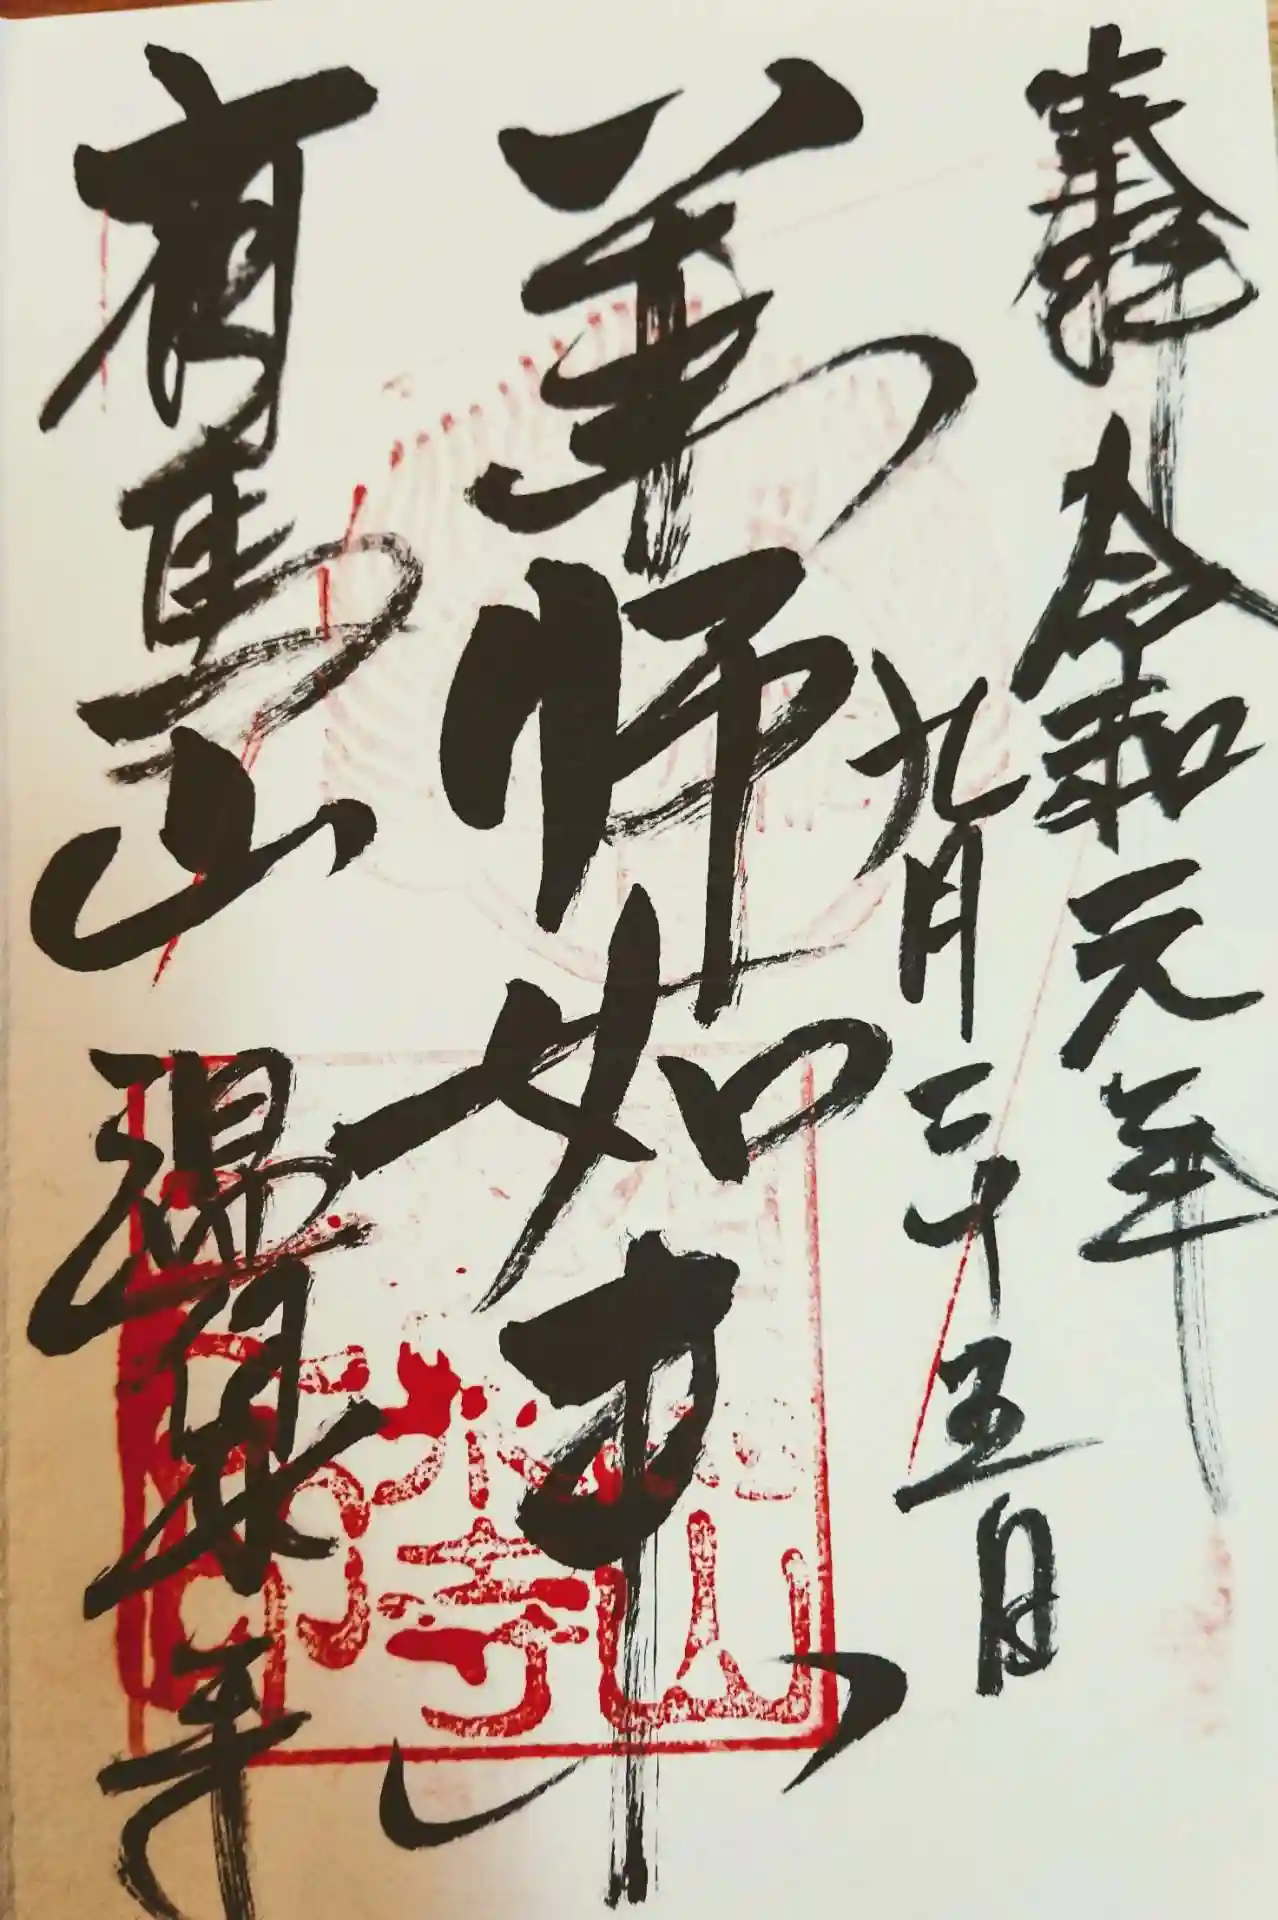 奉拝
令和元年
九月二十五日
薬師如来
有馬山
温泉寺